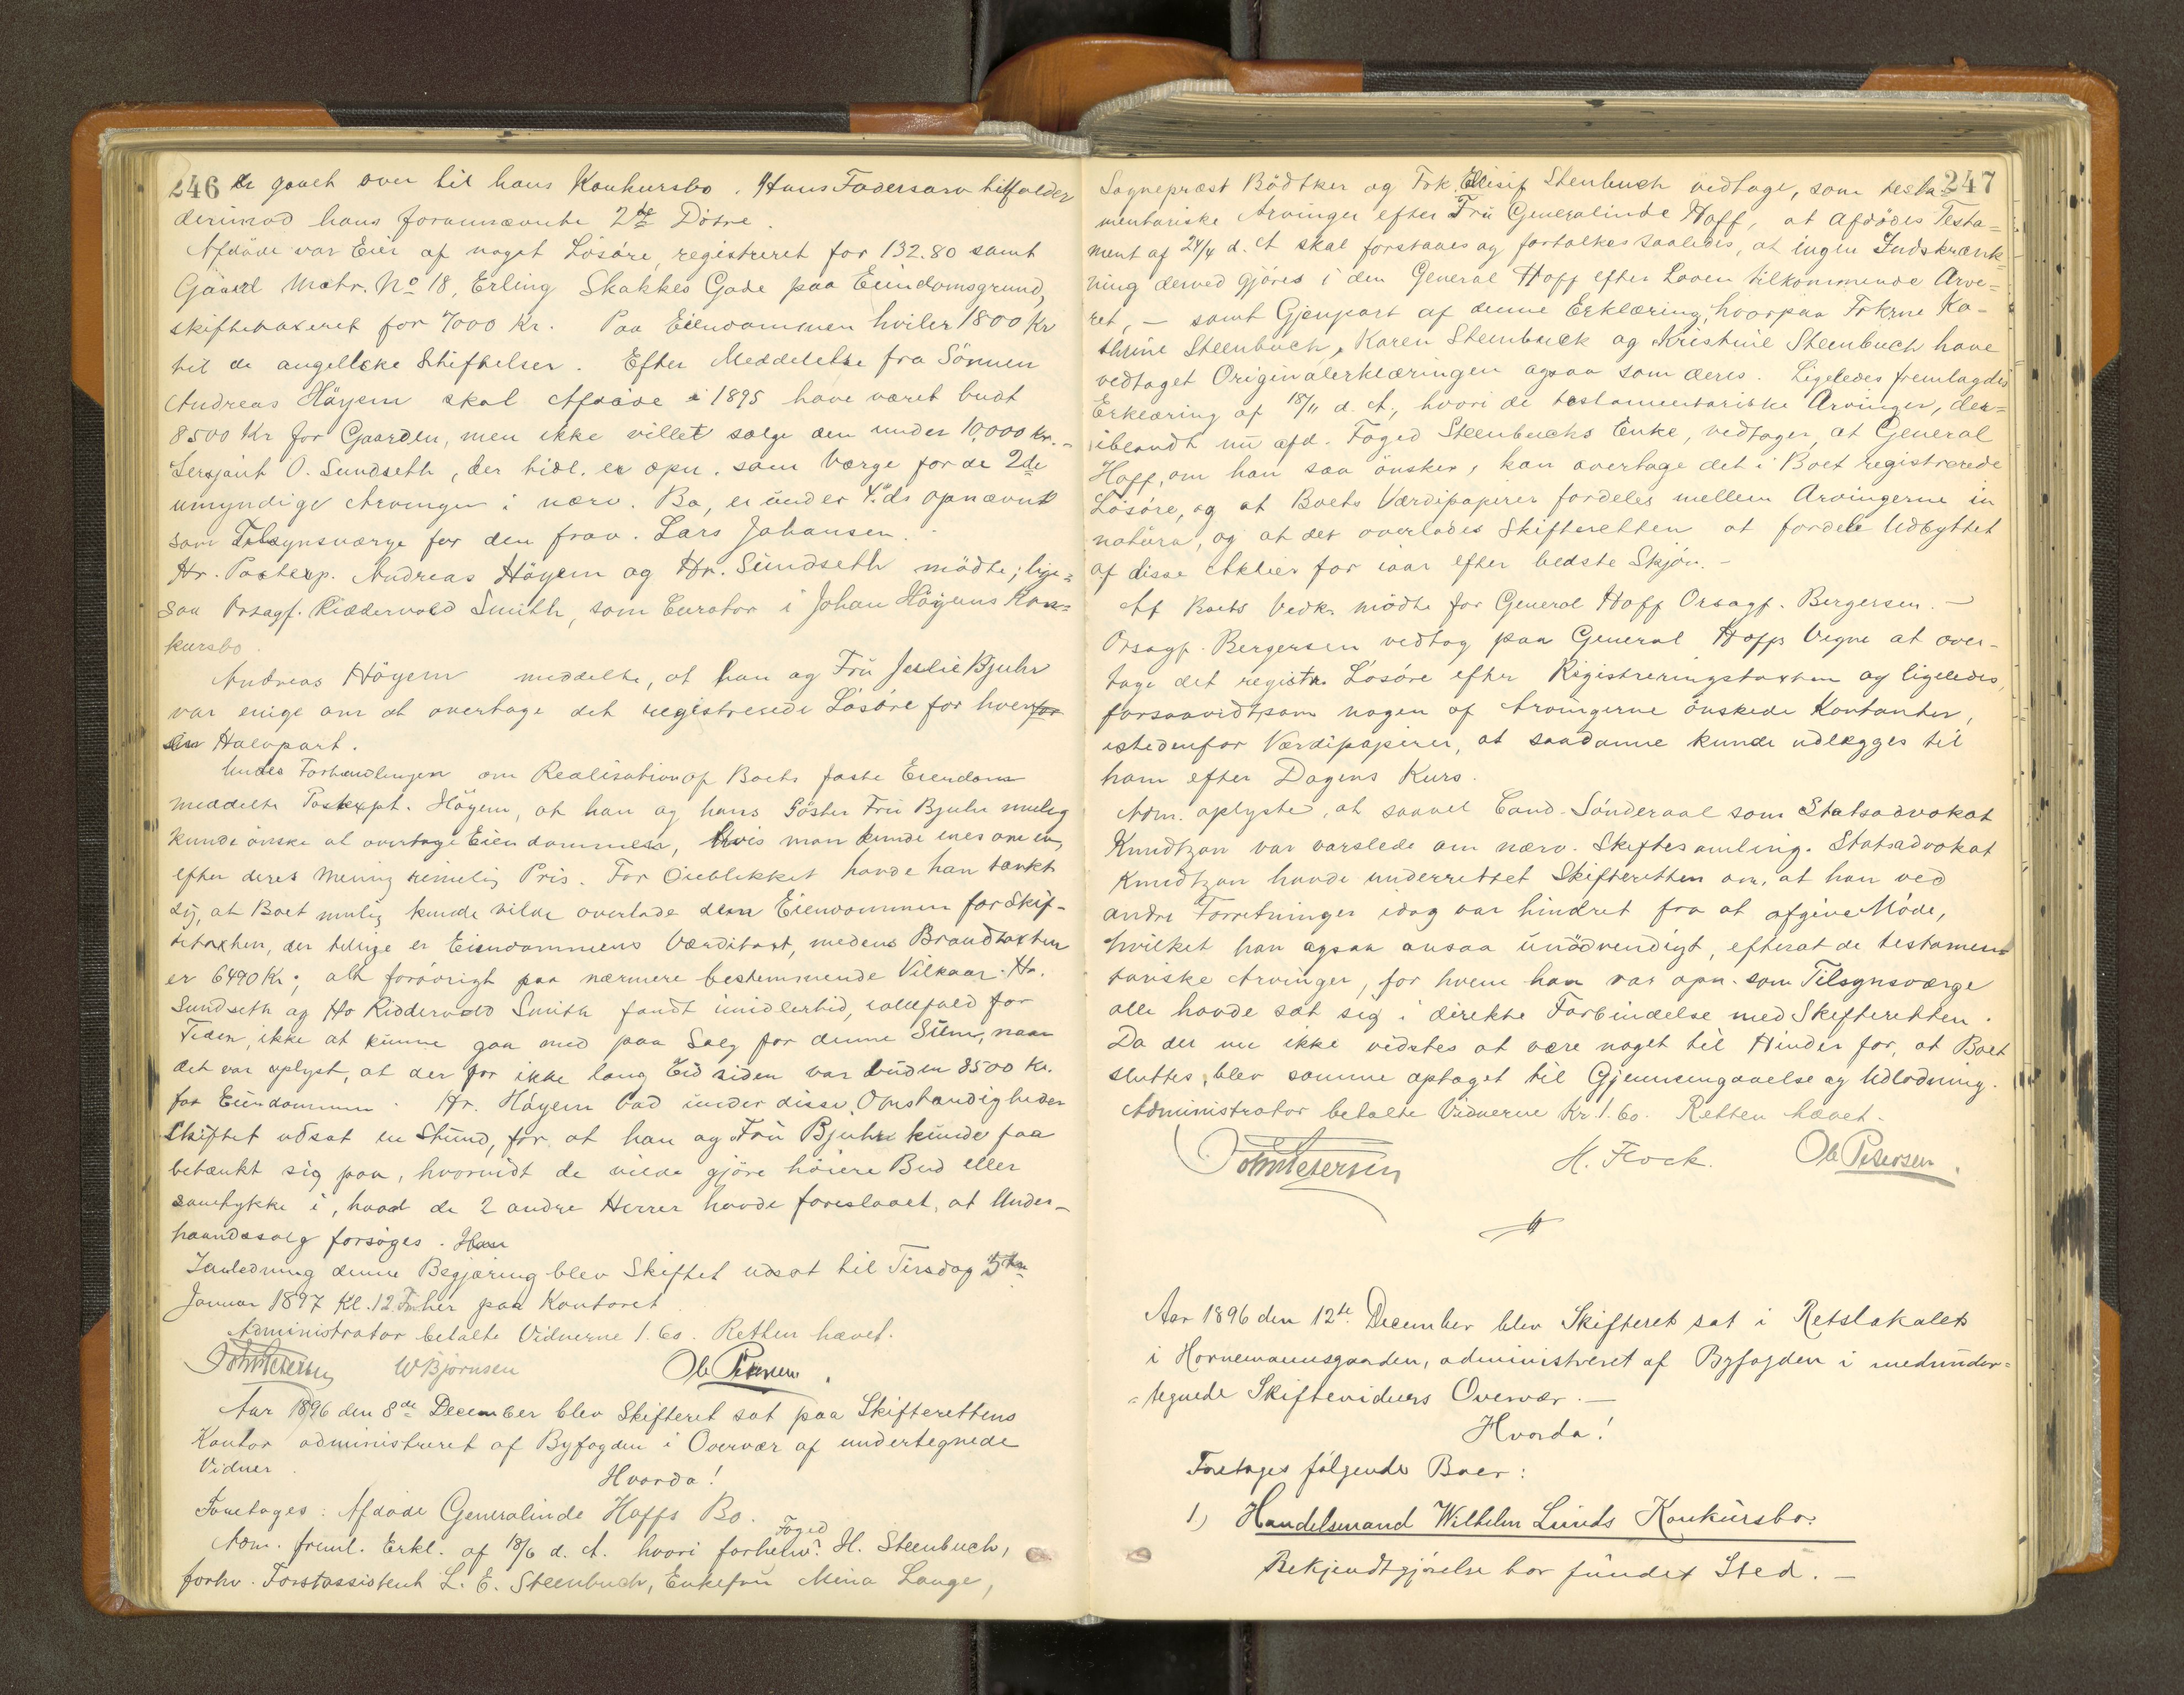 246 de gaaet over til hans Konkursbo. Hans Fadersarv tilfalder
derimod hans forannævnte 2de Døtre.
Afdøde var Eier af noget Løsøre, registreret for 132.80 samt
Gaard Matr. No 18, Erling Skakkes Gade paa Eiendomsgrund,
skiftetaxeret for 7000 Kr. Paa Eiendommen hviler 1800 Kr
til de angellske Stiftelser. Efter Meddelelse fra Sønnen
Andreas Höyem skal Afdøde i 1895 have været budt
8500 Kr for Gaarden, men ikke villet sælge den under 10,000 Kr.-
Sersjant O. Sundseth, der tidl. er opn. som Værge for de 2de
umyndige Arvinger i nærv. Bo, er under 4. ds opnævnt
som Tilsynsværge for den frav. Lars Johansen.
Hr. Postexp. Andreas Höyem og Hr. Sundseth mødte; lige=
saa Orsagf. Riddervold Smith, som Curator i Johan Höyems Kon=
kursbo.
Andreas Höyem meddelte, at han og Fru Julie Bjuhr
var enige om at overtage det registrerede Løsøre for hver
sin Halvpart.
Under Forhandlingen om Realisation af Boets faste Eiendom
meddelte Postexpt. Höyem, at han og hans Søster Fru Bjuhr mulig
kunde ønske at overtage Eiendommen, hvis man kunde enes om en,
efter deres Mening rimelig Pris. For Øieblikket havde han tænkt
sig, at Boet mulig kunde ville overlade dem Eiendommen for Skif-
tetaxten, der tillige er Eiendommens Værditaxt, medens Brandtaxten
er 6490 Kr; alt forøvrigt paa nærmere bestemmende Vilkaar. Hr.
Sundseth og Hr Riddervold Smith fandt imidlertid, iallefald for
Tiden, ikke at kunne gaa med paa Salg for denne Sum, naar
det var oplyst, at der for ikke lang Tid siden var buden 8500 Kr.
for Eiendommen. Hr. Höyem bad under disse Omstændigheder
Skiftet udsat en Stund, for at han og Fru Bjuhr kunde faa
betænkt sig paa, hvorvidt de vilde gjøre høiere Bud eller
samtykke i, hvad de 2 andre Herrer havde foreslaaet, at Under-
haandssalg forsøges.
I Anledning denne Begjæring blev Skiftet udsat til Tirsdag 5te
Januar 1897 Kl. 12 Fm her paa Kontoret
Administrator betalte Vidnerne 1.60. Retten hævet.
John Petersen W Bjørnsen Ole Petersen.
Aar 1896 den 8de December blev Skifteret sat paa Skifterettens
Kontor administreret af Byfogden i Overvær af undertegnede
Vidner.
Hvorda!
Foretages: Afdøde Generalinde Hoffs Bo.
Adm. freml. Erkl. af 18/6 d. A. hvori forhenv. Foged H. Steenbuch,
forhv. Forstassistent L. E. Steenbuch, Enkefru Mina Lange,
247
Sognepræst Bödtker og Frk. Ellisif Stenbuch vedtage, som testa=
mentariske Arvinger efter Fru Generalinde Hoff, at Afdødes Testa=
ment af 24/4 d. A skal forstaaes og fortolkes saaledes, at ingen Indskrænk=
ning derved gjöres i den General Hoff efter Loven tilkommende Arve=
ret, – samt Gjenpart af denne Erklæring, hvorpaa Frkrne Ka-
thrine Steenbuch, Karen Steenbuch og Kristine Steenbuch have
vedtaget Originalerklæringen ogsaa som deres. Ligeledes fremlagdes
Erklæring af 18/11 d. A., hvori de testamentariske Arvinger, der=
iblandt nu afd. Foged Steenbuchs Enke, vedtager, at General
Hoff, om han saa ønsker, kan overtage det i Boet registrerede
Løsøre, og at Boets Værdipapirer fordeles mellem Arvingerne in
natura, og at det overlades Skifteretten at fordele Udbyttet
af disse Aktier for iaar efter bedste Skjøn. –
Af Boets Vedk. mødte for General Hoff Orsagf. Bergersen. –
Orsagf. Bergersen vedtog paa General Hoffs Vegne at over-
tage det registr. Løsøre efter Registreringstaxten og ligeledes,
forsaavidt som nogen af Arvingerne ønskede Kontanter,
istedenfor Værdipapirer, at saadanne kunde udlægges til
ham efter Dagens Kurs.
Adm. oplyste, at saavel Cand. Sönderaal som Statsadvokat
Knudtzon var varslede om nærv. Skiftesamling. Statsadvokat
Knudtzon havde underrettet Skifteretten om, at han ved
andre Forretninger idag var hindret fra at afgive Møde,
hvilket han ogsaa ansaa unødvendigt, efterat de testamen=
tariske Arvinger, for hvem han var opn. som Tilsynsværge
alle havde sat sig i direkte Forbindelse med Skifteretten.
Da der nu ikke vidstes at være noget til Hinder for, at Boet
sluttes, blev samme optaget til Gjennemgaaelse og Udlodning.
Administrator betalte Vidnerne Kr. 1.60. Retten hævet.
John Petersen H. Flock. Ole Petersen.
Aar 1896 den 12te December blev Skifteret sat i Retslokalet
i Hornemannsgaarden, administreret af Byfogden i medunder=
=tegnede Skiftevidners Overvær. –
Hvorda!
Foretages følgende Boer:
1.) Handelsmand Wilhelm Lunds Konkursbo.
Bekjendtgjørelse har fundet Sted. –